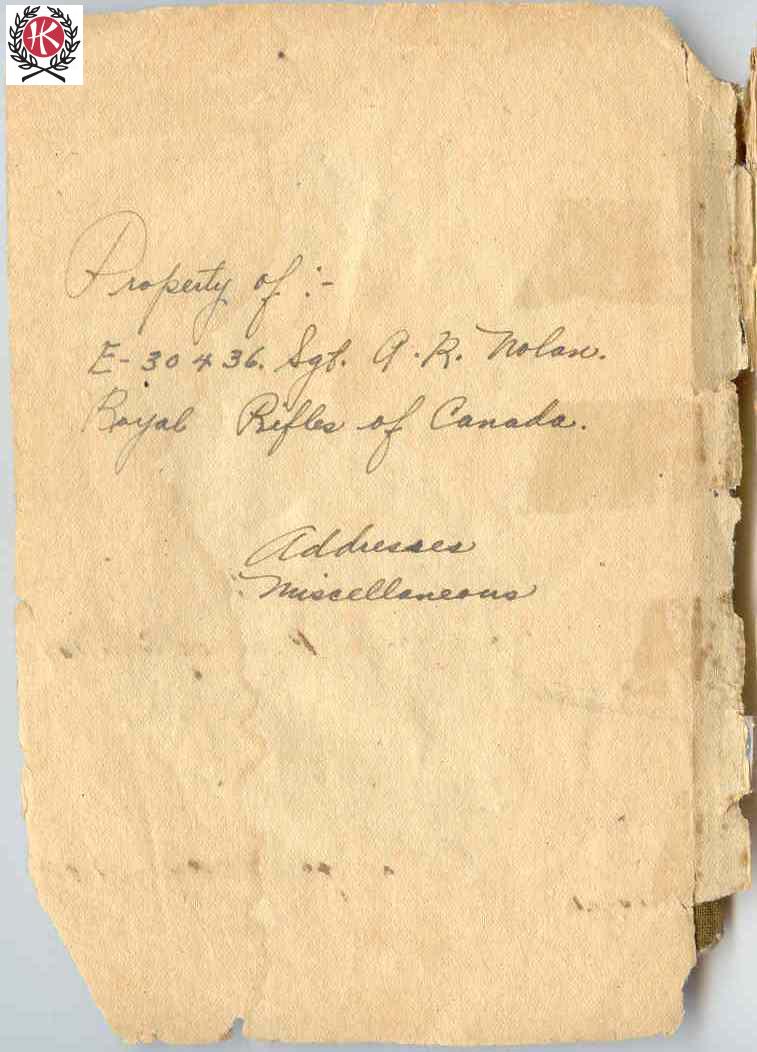 HK
Property of :-
E-30436. Sgt. A. R. Nolan.
Royal Rifles of Canada.
Addresses
Miscellaneous